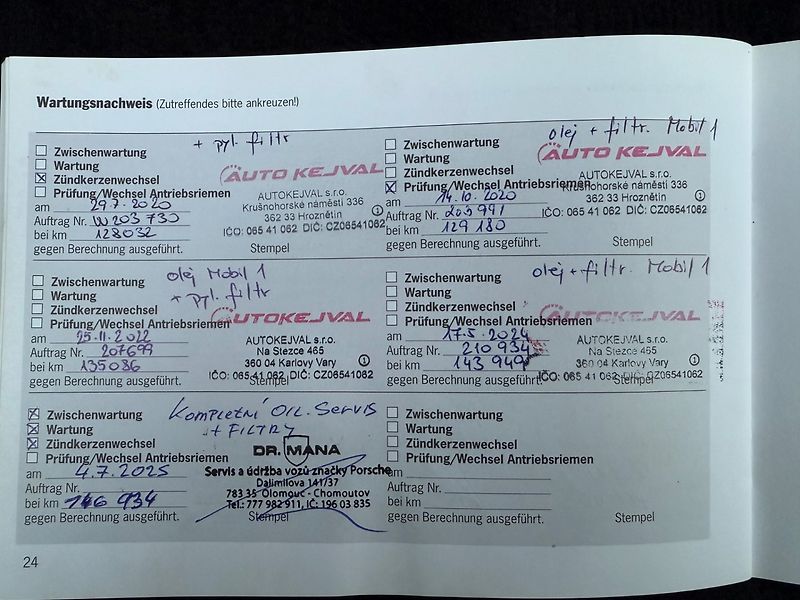 Wartungsnachweis (Zutreffendes bitte ankreuzen!)
+ pyl. filtr
Zwischenwartung
Wartung
Zündkerzenwechsel
Prüfung/Wechsel Antriebsriemen
am 29.7.2020
Auftrag Nr. W203 730
bei km 128032
gegen Berechnung ausgeführt.
AUTO KEJVAL
AUTOKEJVAL s.r.o.
Krušnohorské náměstí 336
362 33 Hroznětín
IČO: 065 41 062 DIČ: CZ06541062
Stempel
olej + filtr. Mobil 1
Zwischenwartung
Wartung
Zündkerzenwechsel
Prüfung/Wechsel Antriebsriemen
am 14.10.2020
Auftrag Nr. 203991
bei km 129 180
gegen Berechnung ausgeführt.
AUTO KEJVAL
AUTOKEJVAL s.r.o.
Krušnohorské náměstí 336
362 33 Hroznětín
IČO: 065 41 062 DIČ: CZ06541062
Stempel
olej Mobil 1
+ pyl. filtr
Zwischenwartung
Wartung
Zündkerzenwechsel
Prüfung/Wechsel Antriebsriemen
am 25.11.2022
Auftrag Nr. 207699
bei km 135086
gegen Berechnung ausgeführt.
AUTOKEJVAL
AUTOKEJVAL s.r.o.
Na Stezce 465
360 04 Karlovy Vary
IČO: 065 41 062 DIČ: CZ06541062
Stempel
olej + filtr. Mobil 1
Zwischenwartung
Wartung
Zündkerzenwechsel
Prüfung/Wechsel Antriebsriemen
am 17.5.2024
Auftrag Nr. 210 934
bei km 143 949
gegen Berechnung ausgeführt.
AUTOKEJVAL
AUTOKEJVAL s.r.o.
Na Stezce 465
360 04 Karlovy Vary
IČO: 065 41 062 DIČ: CZ06541062
Stempel
Kompletní oil. servis
+ filtry
Zwischenwartung
Wartung
Zündkerzenwechsel
Prüfung/Wechsel Antriebsriemen
am 4.7.2025
Auftrag Nr.
bei km 146 934
gegen Berechnung ausgeführt.
DR. MANA
Servis a údržba vozů značky Porsche
Dalimilova 141/37
783 35 Olomouc - Chomoutov
Tel.: 777 982 911, IČ: 196 03 835
Stempel
Zwischenwartung
Wartung
Zündkerzenwechsel
Prüfung/Wechsel Antriebsriemen
am
Auftrag Nr.
bei km
gegen Berechnung ausgeführt.
Stempel
24